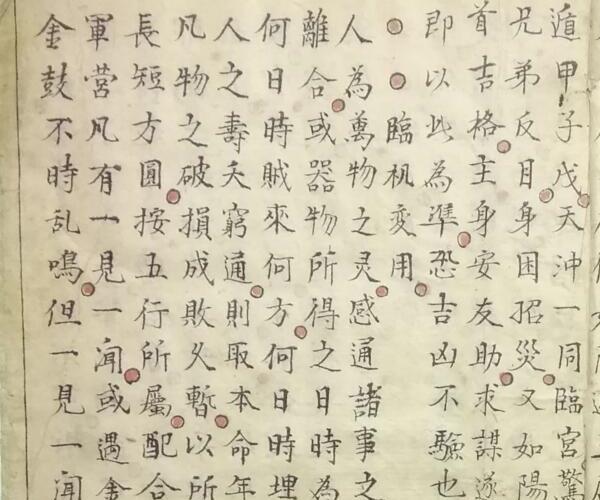 遁甲子戊天沖一同臨宮驚
兄弟反目身困招災又如陽
首吉格主身安友助求謀遂
即以此為準恐吉凶不驗也
臨机变用
人為萬物之灵感通諸事之
離合或器物所得之日時為
何日時賊來何方何日時埋
人之壽夭窮通則取本命年
凡物之破損成敗久暫以所
長短方圓按五行所屬配合
軍營凡有一見一聞或遇金
金鼓不時乱鳴但一見一聞